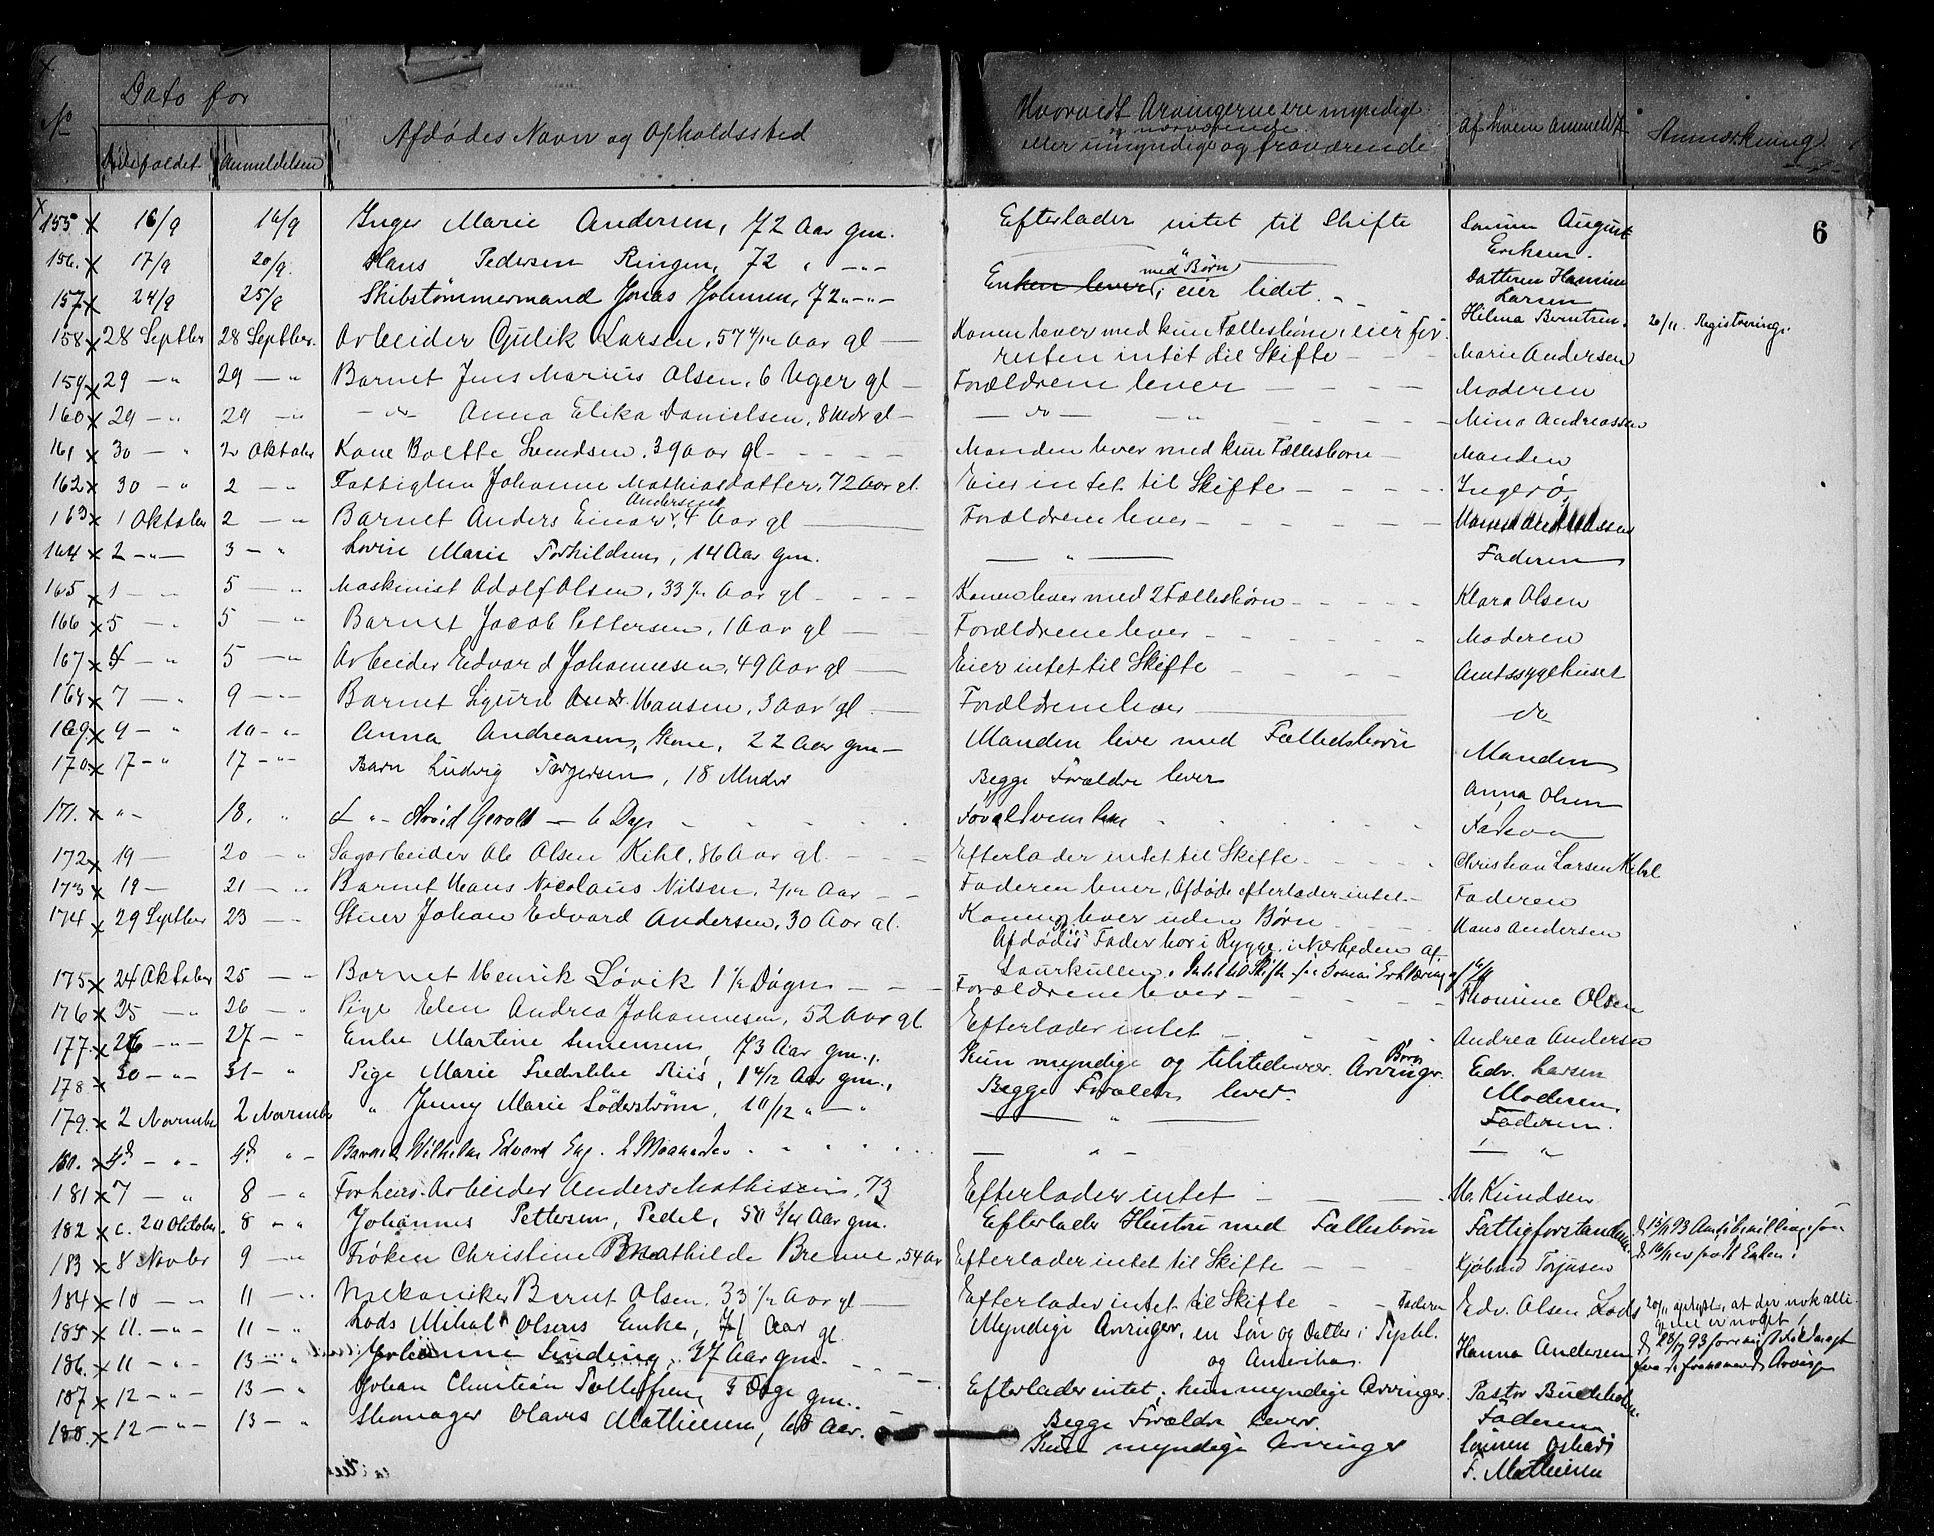 No
Dato for
Dødsfaldet
Anmeldelsen
Afdødes Navn og Opholdssted
Hvorvidt Arvingerne ere myndige
og nærværende
eller umyndige og fraværende
af hvem anmeldt
Anmærkning
6
155 x 16/9 16/9 Inger Marie Andersen, 72 Aar gm. Efterlader intet til Skifte Sønnen August Eriksen.
156. x 17/9 20/9. Hans Pedersen Ringen, 72 " — " — — " — Datteren Hansine Larsen
157 x 24/9 25/9 Skibstømmermand Jonas Johnsen, 72 " — " — Enken lever med Børn; eier lidet. Helma Berntsen.
158 x 28 Septber 28 Septber. Arbeider Gulik Larsen, 57 4/12 Aar gl — Konen lever med kun Fællesbørn, eier for-
resten intet til Skifte — Marie Andersen 20/11. Registrering.
159 x 29 — " 29 — " Barnet Jens Marius Olsen, 6 Uger gl — Forældrene lever — Moderen
160 x 29 — " 29 — " — do Anna Elika Danielsen, 8 Mdr gl — — do — " Mina Andreassen
161 x 30 — " 2 Oktober Kone Bolette Svendsen, 39 Aar gl — Manden lever med kun Fællesbørn — Manden
162 x 30 — " 2 — " Fattiglem Johanne Mathiasdatter, 72 Aar gl. Eier intet til Skifte — Ingerø
163 x 1 Oktober 2 — " Barnet Anders Einar Andersen, 4 Aar gl Forældrene lever —
164 x 2 — " — 3 — " Lovise Marie Torkildsen, 14 Aar gm. — " — Faderen
165 x 1 — 5 — " Maskinist Adolf Olsen, 33 Aar gl — Konen lever med 2 Fællesbørn — Klara Olsen
166 x 5 — " 5 — " Barnet Jacob Pettersen, 1 Aar gl — Forældrene lever — Moderen
167 x 4 — " 5 — " Arbeider Edvard Johannesen, 49 Aar gl — Eier intet til Skifte — Amtssygehuset
168 x 7 — " 9 — " Barnet Sigurd Hansen, 3 Aar gl — Forældrene lever — do
169. x 9 — " 10 — " Anna Andreasen, Kone, 22 Aar gm — Manden lever med Fælledsbørn Manden
170 x 17 — " 17 — " Barn Ludvig Torgersen, 18 Mndr Begge Forældre lever Anna Olsen
171. x " — 18. " " — Arvid Gerolt — 6 Dage Forældrene lever Faderen
172 x 19 — 20 — " Sagarbeider Ole Olsen Kihl, 86 Aar gl. — Efterlader intet til Skifte. — Christian Larsen Kihl
173 x 19 — 21 — " Barnet Hans Nicolaus Nilsen, 2/12 Aar — Faderen lever, Afdøde efterlader intet. — Faderen
174 x 29 Septber 23 — " Stuer Johan Edvard Andersen, 30 Aar gl. Konen lever uden Børn — Hans Andersen
Afdødes Fader bor i Rygge i Nærheden af
Laurkullen. Intet til Skifte
175 x 24 Oktober 25 — " Barnet Henrik Løvik 1 1/2 Døgn — Forældrene lever — Thomine Olsen
176 x 25 — " 26 — " Pige Elen Andrea Johannesen, 52 Aar gl Efterlader intet — Andrea Andersen
177. x 26 — " — 27 — " Enke Martine Simensen, 73 Aar gm., Kun myndige og tilstedevær. Arvinger. Børn Edv. Larsen
178. x 30 — " — 31 — " Pige Marie Fredrikke Riis, 1 4/12 Aar gm., Begge Forældre lever. Moderen.
179. x 2 November 2 November " Jenny Marie Söderström, 10/12 " — " — " — Faderen.
180. x 4de — " — 4de " — Barnet Wilhelm Edvard Eng. 2 Maaneder — " — — " —
181 x 7 — " 8 — " Forhenv. Arbeider Anders Mathisen, 73 Efterlader intet — M. Knudsen
182 x c. 20 Oktober. 8 — " Johannes Pettersen, Pedel, 50 3/4 Aar gm. Efterlader Hustru med Fællesbørn Fattigforstanderen.
183 x 8 Novbr 9 — " Frøken Christine Mathilde Brenne, 54 Aar Efterlader intet til Skifte — Kjølund Torjusen
184 x 10 — " 11 — " Mekaniker Bernt Olsen, 33 1/2 Aar gl — Efterlader intet til Skifte — Faderen Edv. Olsen Lods
185 x 11. — " — 11 — " Lods Mikal Olsens Enke, 71 Aar gl. Myndige Arvinger, en Søn og Datter i
og Amerika. Hanna Andersen
186. x 11 — " — 13 — " Johanne Sinding, 37 Aar gm. — Efterlader intet. kun myndige Arvinger. Pastor Buchholm.
187 x 12 — " 13 — " Johan Christian Tollefsen, 3 Dage gm.. — Begge Forældre lever. Faderen
188. x 12 — " — 13 — " Skomager Olaves Mathiesen, 68 Aar. Kun myndige Arvinger Sønnen
F. Mathiesen